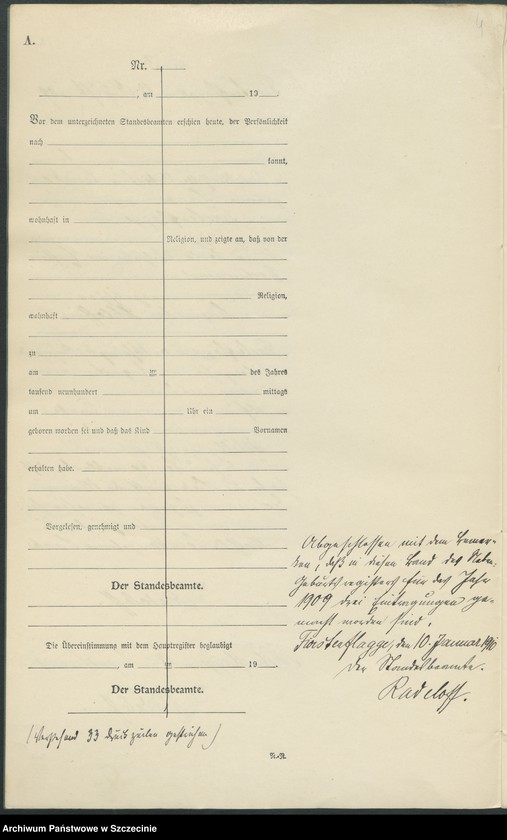 A.
4
Nr.
, am 19 .
Vor dem unterzeichneten Standesbeamten erschien heute, der Persönlichkeit
nach
kannt,
wohnhaft in
Religion, und zeigte an, daß von der
Religion,
wohnhaft
zu
am ten des Jahres
tausend neunhundert mittags
um Uhr ein
geboren worden sei und daß das Kind Vornamen
erhalten habe.
Vorgelesen, genehmigt und
Der Standesbeamte.
Die Übereinstimmung mit dem Hauptregister beglaubigt
, am ten 19 .
Der Standesbeamte.
(Vorstehend 33 Druckzeilen gestrichen)
Abgeschlossen mit dem Bemer-
ken, daß in diesen Band des Neben-
Geburtsregisters für das Jahr
1909 drei Eintragungen ge-
macht worden sind.
Fürstenflagge, den 10. Januar 1910
Der Standesbeamte.
Radeloff.
N.-R.
Archiwum Państwowe w Szczecinie